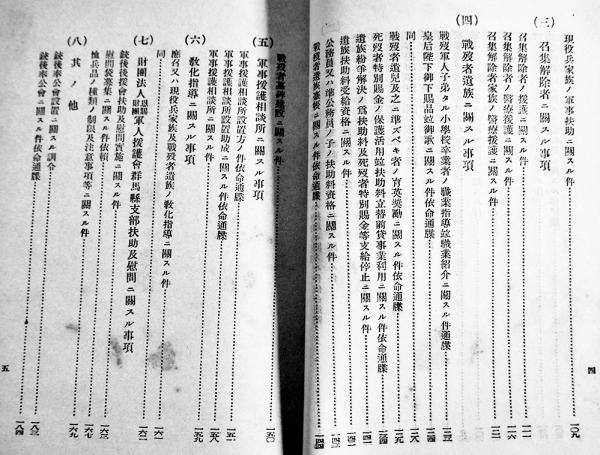 現役兵家族ノ軍事扶助ニ關スル件……一〇九
(三) 召集解除者ニ關スル事項
召集解除者ノ援護ニ關スル件
召集解除者ノ醫療援護ニ關スル件……一一六
召集解除者家族ノ醫療援護ニ關スル件
(四) 戰歿者遺族ニ關スル事項
戰歿軍人子弟タル小學校卒業者ノ職業指導竝職業紹介ニ關スル件通牒
皇后陛下御下賜品竝御歌ニ關スル件依命通牒
同
戰歿者遺兒及之ニ準ズベキ者ノ育英奬勵ニ關スル件依命通牒
死歿者特別賜金ノ保護活用竝扶助料立替前貸事業利用ニ關スル件依命通牒
遺族紛爭解決ノ爲扶助料及死歿者特別賜金等支給停止ニ關スル件
遺族扶助料受給資格ニ關スル件
公務員又ハ準公務員ノ子ノ扶助料資格ニ關スル件
戰歿者遺族臺帳ニ關スル件依命通牒
四
戰歿者墓碑建設ニ關スル件
(五) 軍事援護相談所ニ關スル事項
軍事援護相談所設置方ノ件依命通牒
軍事援護相談所設置助成ニ關スル件依命通牒
軍事援護相談所ニ關スル件
(六) 敎化指導ニ關スル事項
應召又ハ現役兵家族及戰歿者遺族ノ敎化指導ニ關スル件……一五九
同
(七) 財團法人恩賜財團軍人援護會群馬縣支部扶助及慰問ニ關スル事項
銃後後援會扶助及慰問實施ニ關スル件
慰問袋募集ニ關スル件依賴
恤兵品ノ種類ノ制限及注意事項等ニ關スル件……一六七
(八) 其ノ他……一六九
銃後奉公會設置ニ關スル訓令
銃後奉公會設置ニ關スル件依命通牒……一八四
五